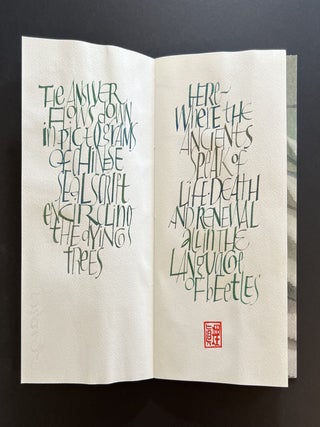 THE ANSWER
FLOWS DOWN
IN PICTOGRAMS
OF CHINESE
SEAL SCRIPT
ENCIRCLING
THE DYING
TREES
HERE—
WHERE THE
ANCIENTS
SPEAK OF
LIFE DEATH
AND RENEWAL
ALL IN THE
LANGUAGE
OF BEETLES